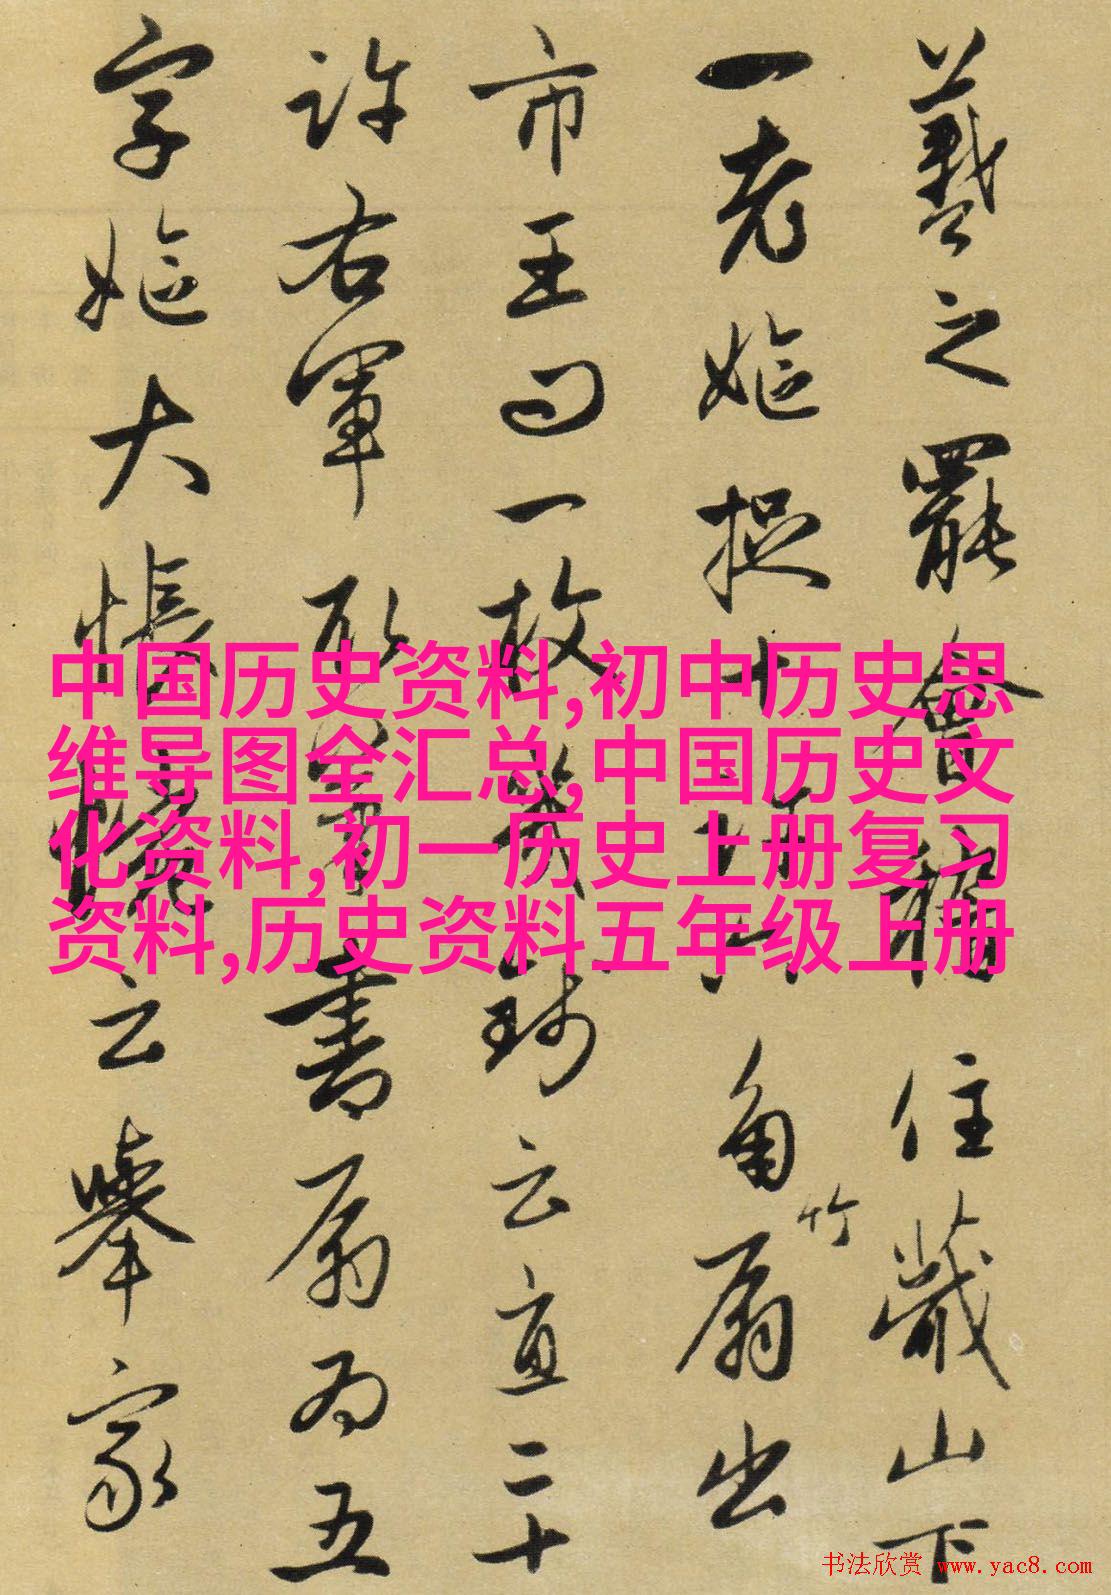 羲之罷會稽住蕺山下
一老嫗捉十許六角竹扇出
市王問一枚幾錢云直二十
許右軍取筆書扇為五
字嫗大悵惋云舉家
中国历史资料,初中历史思
维导图全汇总,中国历史文
化资料,初一历史上册复习
资料,历史资料五年级上册
书法欣赏 www.yac8.com